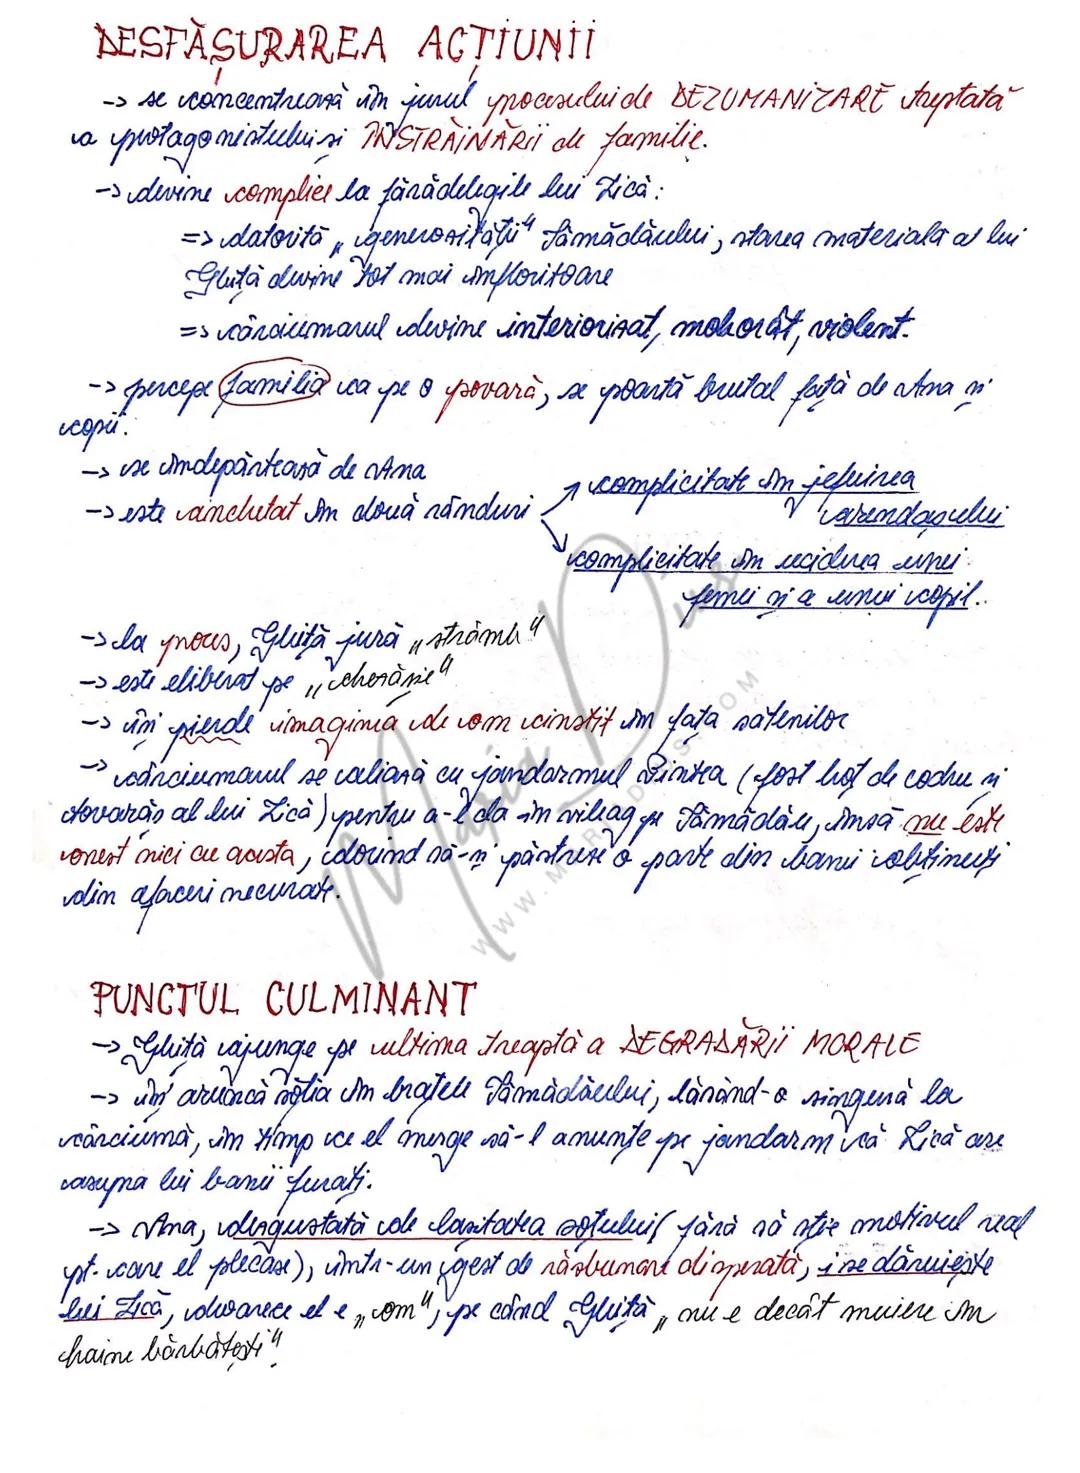 DESFĂȘURAREA ACȚIUNII
-> se concentrează în jurul procesului de DEZUMANIZARE treptată
a protagonistului și ÎNSTRĂINĂRII de familie.
-> devine complice la fărădelegile lui Lică:
=> datorită „generozității" Sămădăului, starea materială a lui
Ghiță devine tot mai înfloritoare
=> cârciumarul devine interiorizat, mohorât, violent.
-> percepe familia ca pe o povară, se poartă brutal față de Ana și
copii.
-> se îndepărtează de Ana
-> este anchetat în două rânduri
complicitate în jefuirea
arendașului
complicitate în uciderea unei
femei și a unui copil.
-> la proces, Ghiță jură „strâmb"
-> este eliberat pe „chezășie"
-> își pierde imaginea de om cinstit în fața sătenilor
-> cârciumarul se aliază cu jandarmul Pintea (fost hoț de codru și
tovarăș al lui Lică) pentru a-l da în vileag pe Sămădău, însă nu este
onest nici cu acesta, dorind să-și păstreze o parte din banii obținuți
din afaceri necurate.
PUNCTUL CULMINANT
-> Ghiță ajunge pe ultima treaptă a DEGRADĂRII MORALE
-> își aruncă soția în brațele Sămădăului, lăsând-o singură la
cârciumă, în timp ce el merge să-l anunțe pe jandarm că Lică are
asupra lui banii furați.
-> Ana, dezgustată de lașitatea soțului (fără să știe motivul real
pt. care el plecase), într-un gest de răzbunare disperată, i se dăruiește
lui Lică, deoarece el e „om", pe când Ghiță „nu e decât muiere în
haine bărbătești".
Maria Dius
WWW.MARIADIUS.COM